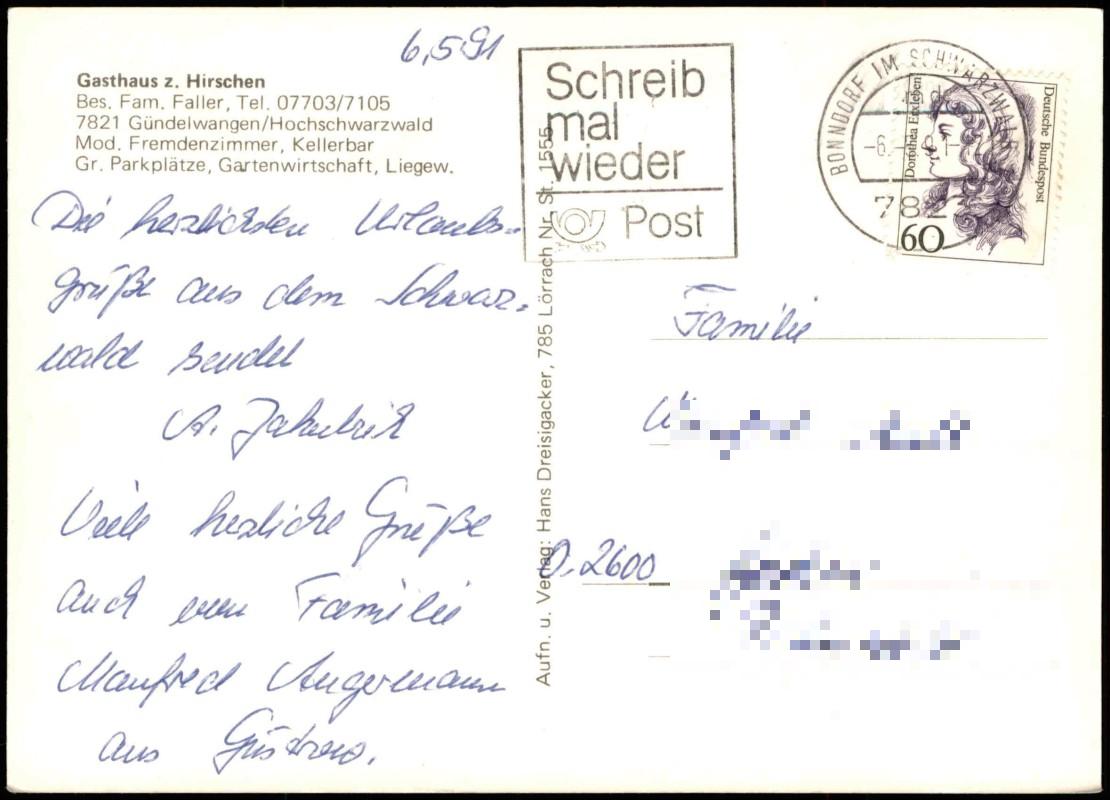 6.5.91
Gasthaus z. Hirschen
Bes. Fam. Faller, Tel. 07703/7105
7821 Gündelwangen/Hochschwarzwald
Mod. Fremdenzimmer, Kellerbar
Gr. Parkplätze, Gartenwirtschaft, Liegew.
Die herzlichsten Urlaubs-
grüße aus dem Schwarz-
wald sendet
A.
Viele herzliche Grüße
auch von Familie
Manfred Angermann
aus Güstrow.
Aufn. u. Verlag: Hans Dreisigacker, 785 Lörrach Nr. St. 1555
Schreib
mal
wieder
Post
BONNDORF IM SCHWARZWALD
782
Dorothea Erxleben
Deutsche Bundespost
60
Familie
O. 2600